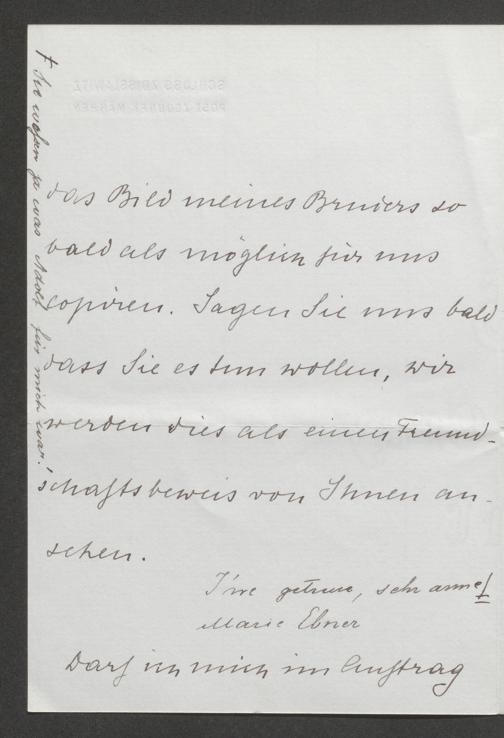 das Bild meines Bruders so
bald als möglich für uns
copiren. Sagen Sie uns bald
dass Sie es tun wollen, wir
werden dies als einen Freund-
schaftsbeweis von Ihnen an-
sehen.
Ihre getreue, sehr arme †
Marie Ebner
Darf ich mich im Auftrag
† Sie wissen ja was Adolf für mich war!
SCHLOSS ZDISSLAWITZ
POST ZDOUNEK MÄHREN